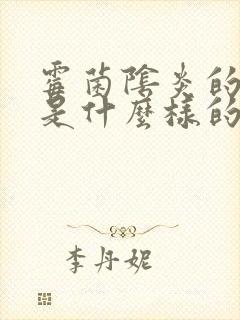 霉菌陰炎的
是什麼樣的
李丹妮